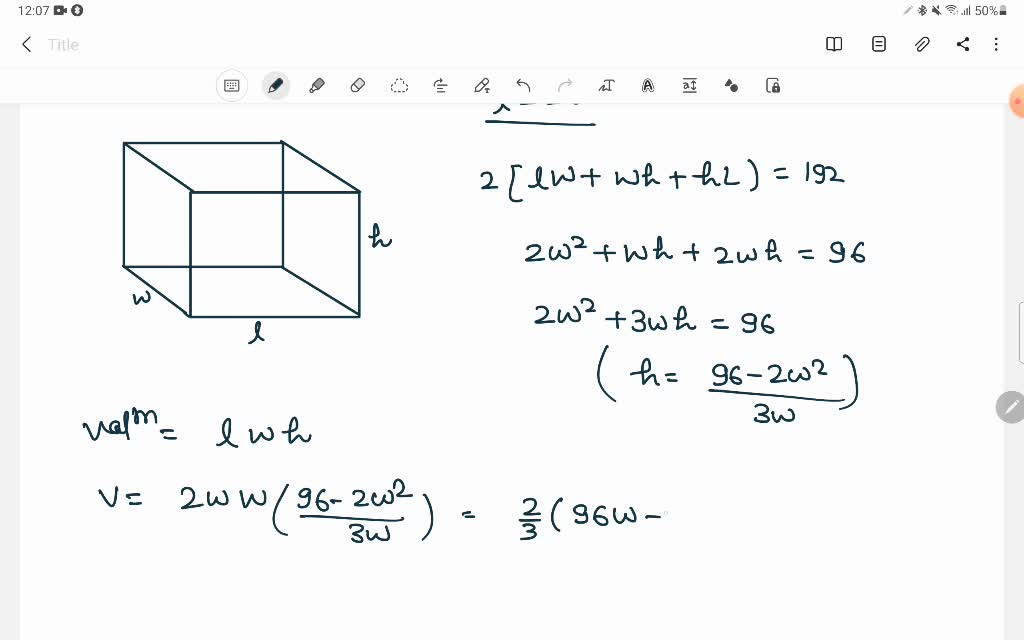 12:07 50%
Title
h
w
l
2[lw + wh + hL) = 192
2w² + wh + 2wh = 96
2w² + 3wh = 96
(h = \frac{96 - 2w²}{3w})
volm = lwh
V = 2w w(\frac{96 - 2w²}{3w}) = \frac{2}{3}(96w -